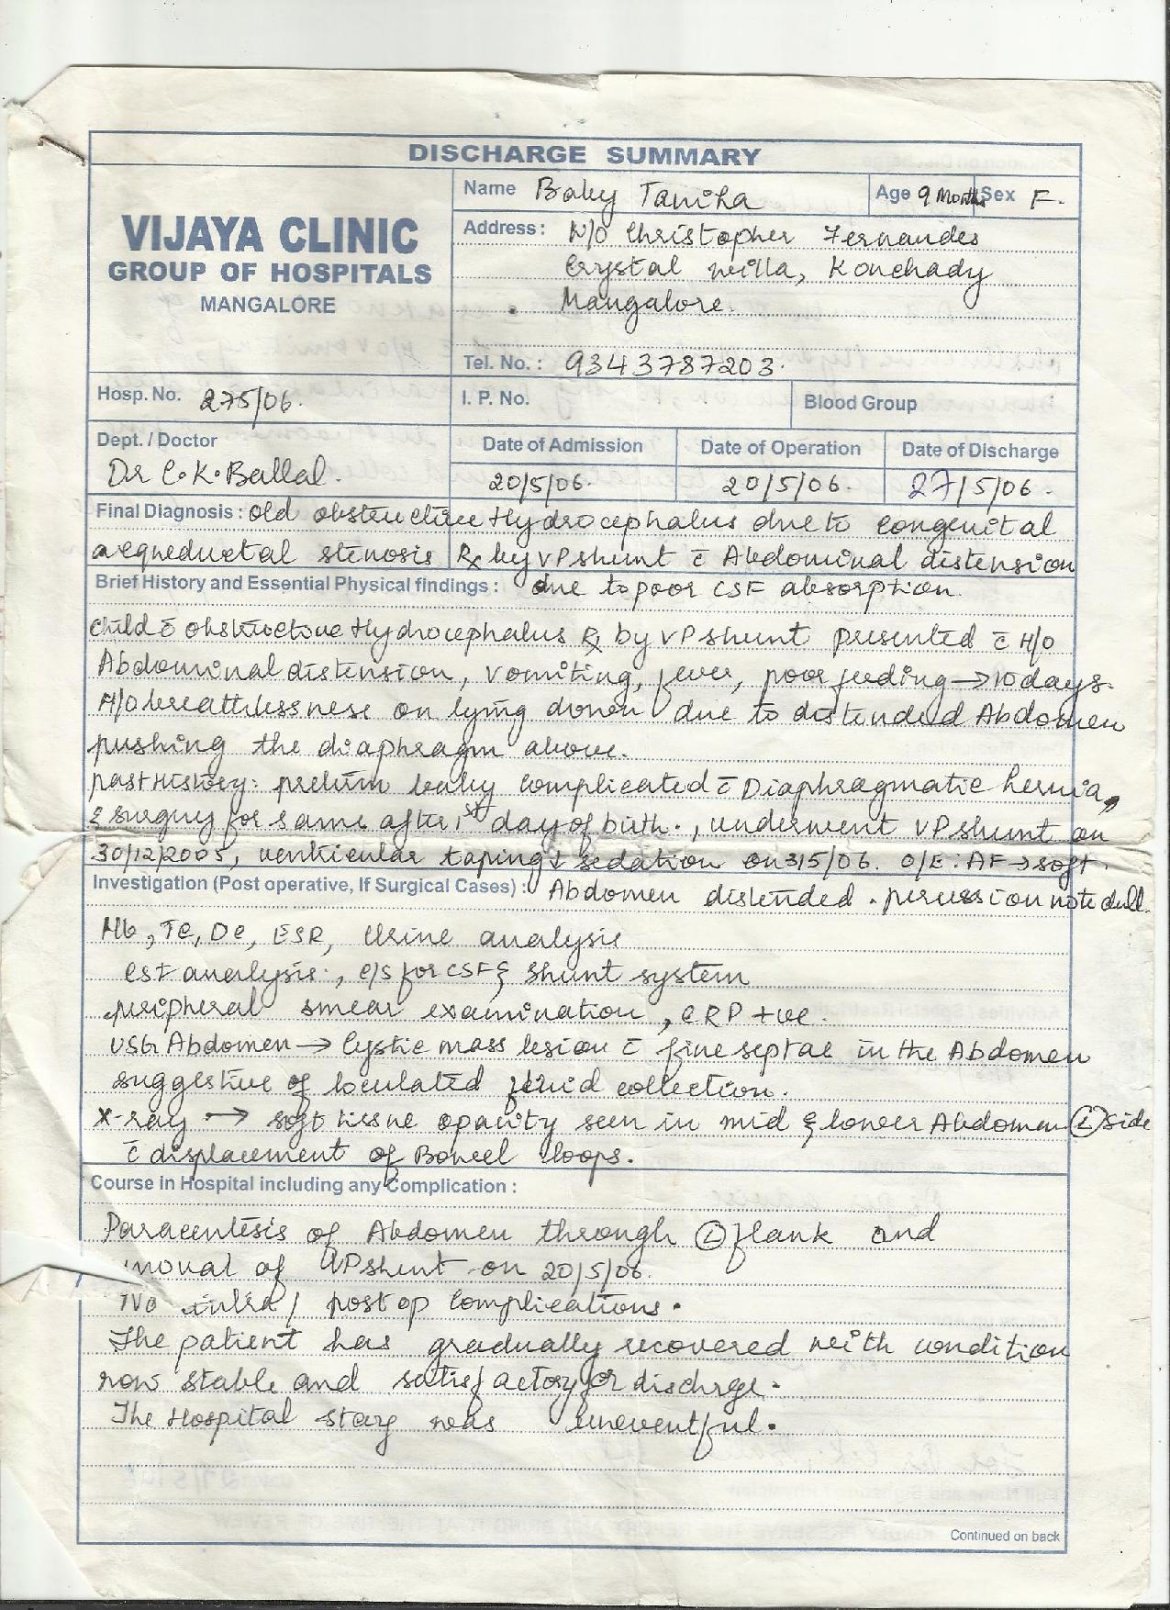 DISCHARGE SUMMARY
VIJAYA CLINIC
GROUP OF HOSPITALS
MANGALORE
Name Baby Taniha
Age 9 Months Sex F.
Address: D/O Christopher Fernandes
Crystal villa, Konchady
Mangalore.
Tel. No.: 9343787203.
Hosp. No. 275/06.
I. P. No.
Blood Group
Dept. / Doctor
Dr C.K.Ballal.
Date of Admission
20/5/06.
Date of Operation
20/5/06.
Date of Discharge
27/5/06.
Final Diagnosis: old obstructive Hydrocephalus due to congenital
aequeductal stenosis Rx by VP shunt c̄ Abdominal distension
due to poor CSF absorption.
Brief History and Essential Physical findings:
child c̄ obstructive Hydrocephalus Rx by VP shunt presented c̄ H/O
Abdominal distension, vomiting, fever, poor feeding → 10 days.
H/O breathlessness on lying down due to distended Abdomen
pushing the diaphragm above.
past History: preterm baby complicated c̄ Diaphragmatic hernia,
& surgery for same after 1st day of birth., underwent VP shunt on
30/12/2005, ventricular taping & sedation on 3/5/06. O/E: AF → soft.
Investigation (Post operative, If Surgical Cases): Abdomen distended. percussion note dull.
Hb, TC, DC, ESR, Urine analysis
CSF analysis., C/S for CSF & shunt system
peripheral smear examination, CRP +ve.
USG Abdomen → Cystic mass lesion c̄ fine septae in the Abdomen
suggestive of loculated fluid collection.
X-ray → soft tissue opacity seen in mid & lower Abdomen (L) side
c̄ displacement of Bowel loops.
Course in Hospital including any Complication:
Paracentesis of Abdomen through (L) flank and
moval of VP shunt on 20/5/06.
No intra / post op complications.
The patient has gradually recovered with condition
now stable and satisfactory for dischrge.
The Hospital stay was uneventful.
Continued on back